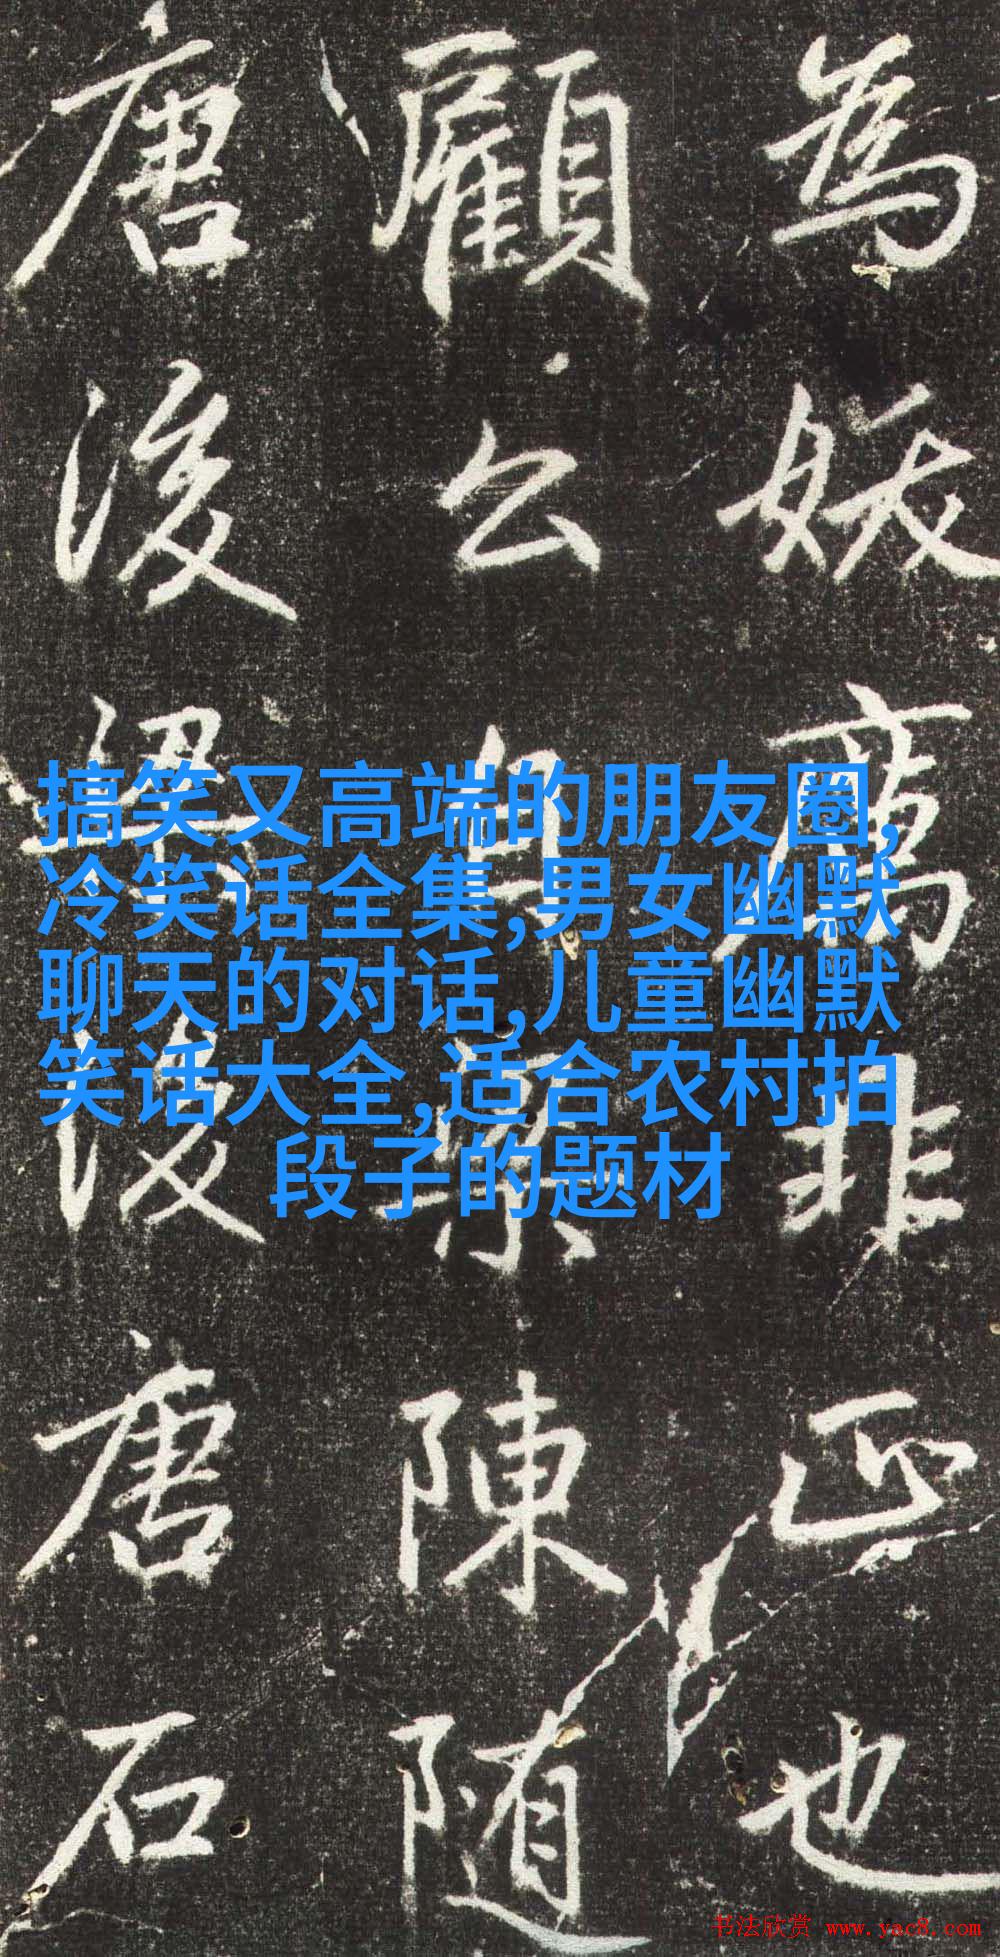 搞笑又高端的朋友圈,
冷笑话全集,男女幽默
聊天的对话,儿童幽默
笑话大全,适合农村拍
段子的题材
為妖厲非正也
顧公自梁陳随
唐後梁後唐石
书法欣赏 www.yac8.com